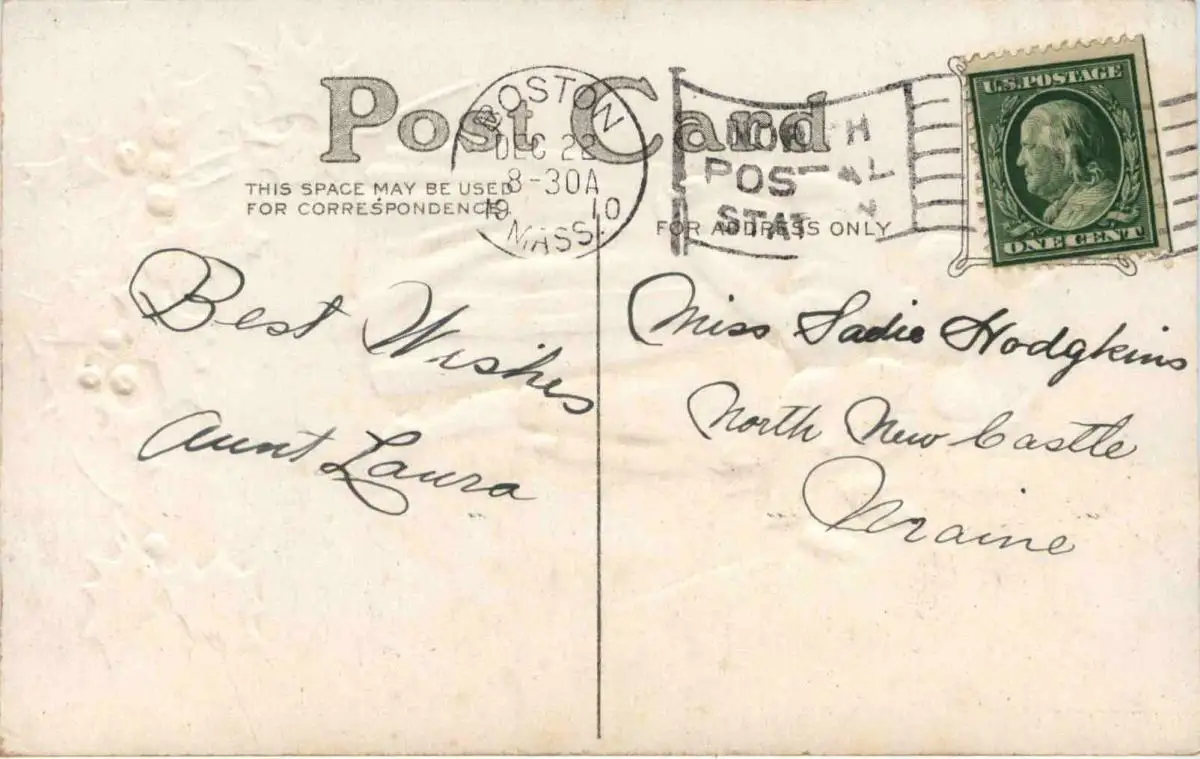 Post Card
THIS SPACE MAY BE USED
FOR CORRESPONDENCE
FOR ADDRESS ONLY
BOSTON
DEC 22
8-30A
1910
MASS.
NORTH
POSTAL
STATION
U.S. POSTAGE
ONE CENT
Best Wishes
Aunt Laura
Miss Sadie Hodgkins
North New Castle
Maine